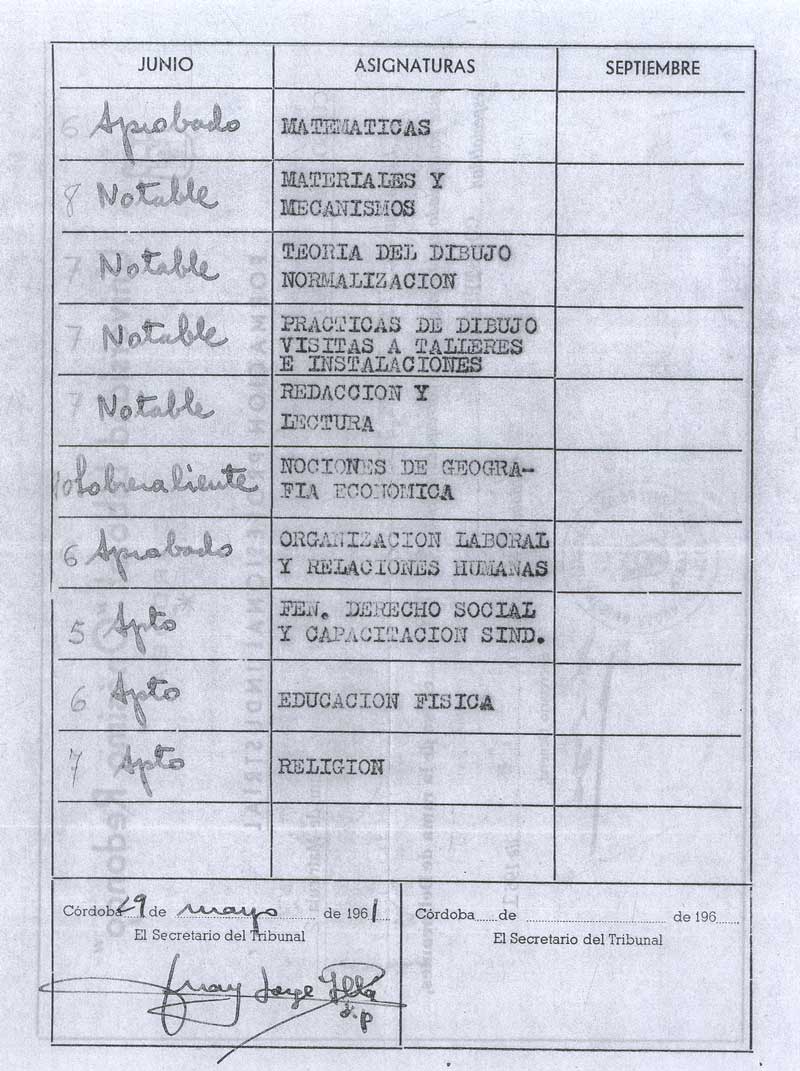 JUNIO ASIGNATURAS SEPTIEMBRE
6 Aprobado MATEMATICAS
8 Notable MATERIALES Y
MECANISMOS
7 Notable TEORIA DEL DIBUJO
NORMALIZACION
7 Notable PRACTICAS DE DIBUJO
VISITAS A TALLERES
E INSTALACIONES
7 Notable REDACCION Y
LECTURA
10 Sobresaliente NOCIONES DE GEOGRA-
FIA ECONOMICA
6 Aprobado ORGANIZACION LABORAL
Y RELACIONES HUMANAS
5 Apto FEN. DERECHO SOCIAL
Y CAPACITACION SIND.
6 Apto EDUCACION FISICA
7 Apto RELIGION
Córdoba 29 de mayo de 1961
El Secretario del Tribunal
Juan Jorge
Córdoba de de 196
El Secretario del Tribunal